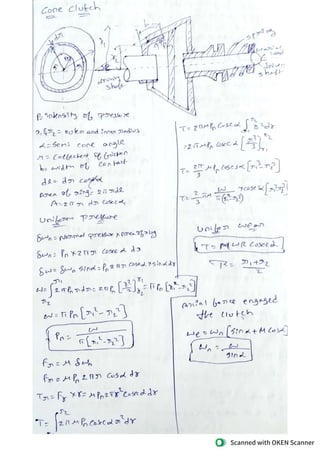 Cone clutch
b
dr
driving
shaft
spring
driven
shaft
P. Intensity of pressure
r1 & r2 = outer and inner radius
α = semi cone angle
μ = coefficient of friction
b = width of contact
dl = dr cosecα
Area of ring = 2πrdl
A = 2πr dr cosecα
Uniform pressure
δwn = normal pressure × Area of ring
δwn = Pn × 2πr cosecα dr
δw = δwn sinα = Pn 2πr cosecα × sinα dr
w = ∫ 2πPn r dr = 2πPn [r²/2] = πPn [r1² - r2²]
w = πPn [r1² - r2²]
Pn = w / π[r1² - r2²]
Fr = μ δwn
Fr = μPn 2πr cosecα dr
Tr = Fr × r = μPn 2πr² cosecα dr
T = ∫ 2πμPn cosecα r² dr
T = 2πμPn cosecα ∫ r² dr
= 2πμPn cosecα [r³/3]
T = 2π/3 μPn cosecα [r1³ - r2³]
Uniform wear
T = μWR cosecα
R = r1 + r2 / 2
Axial force engaged
the clutch
we = wn [sinα + μ cosα]
wn = w / sinα
Scanned with OKEN Scanner